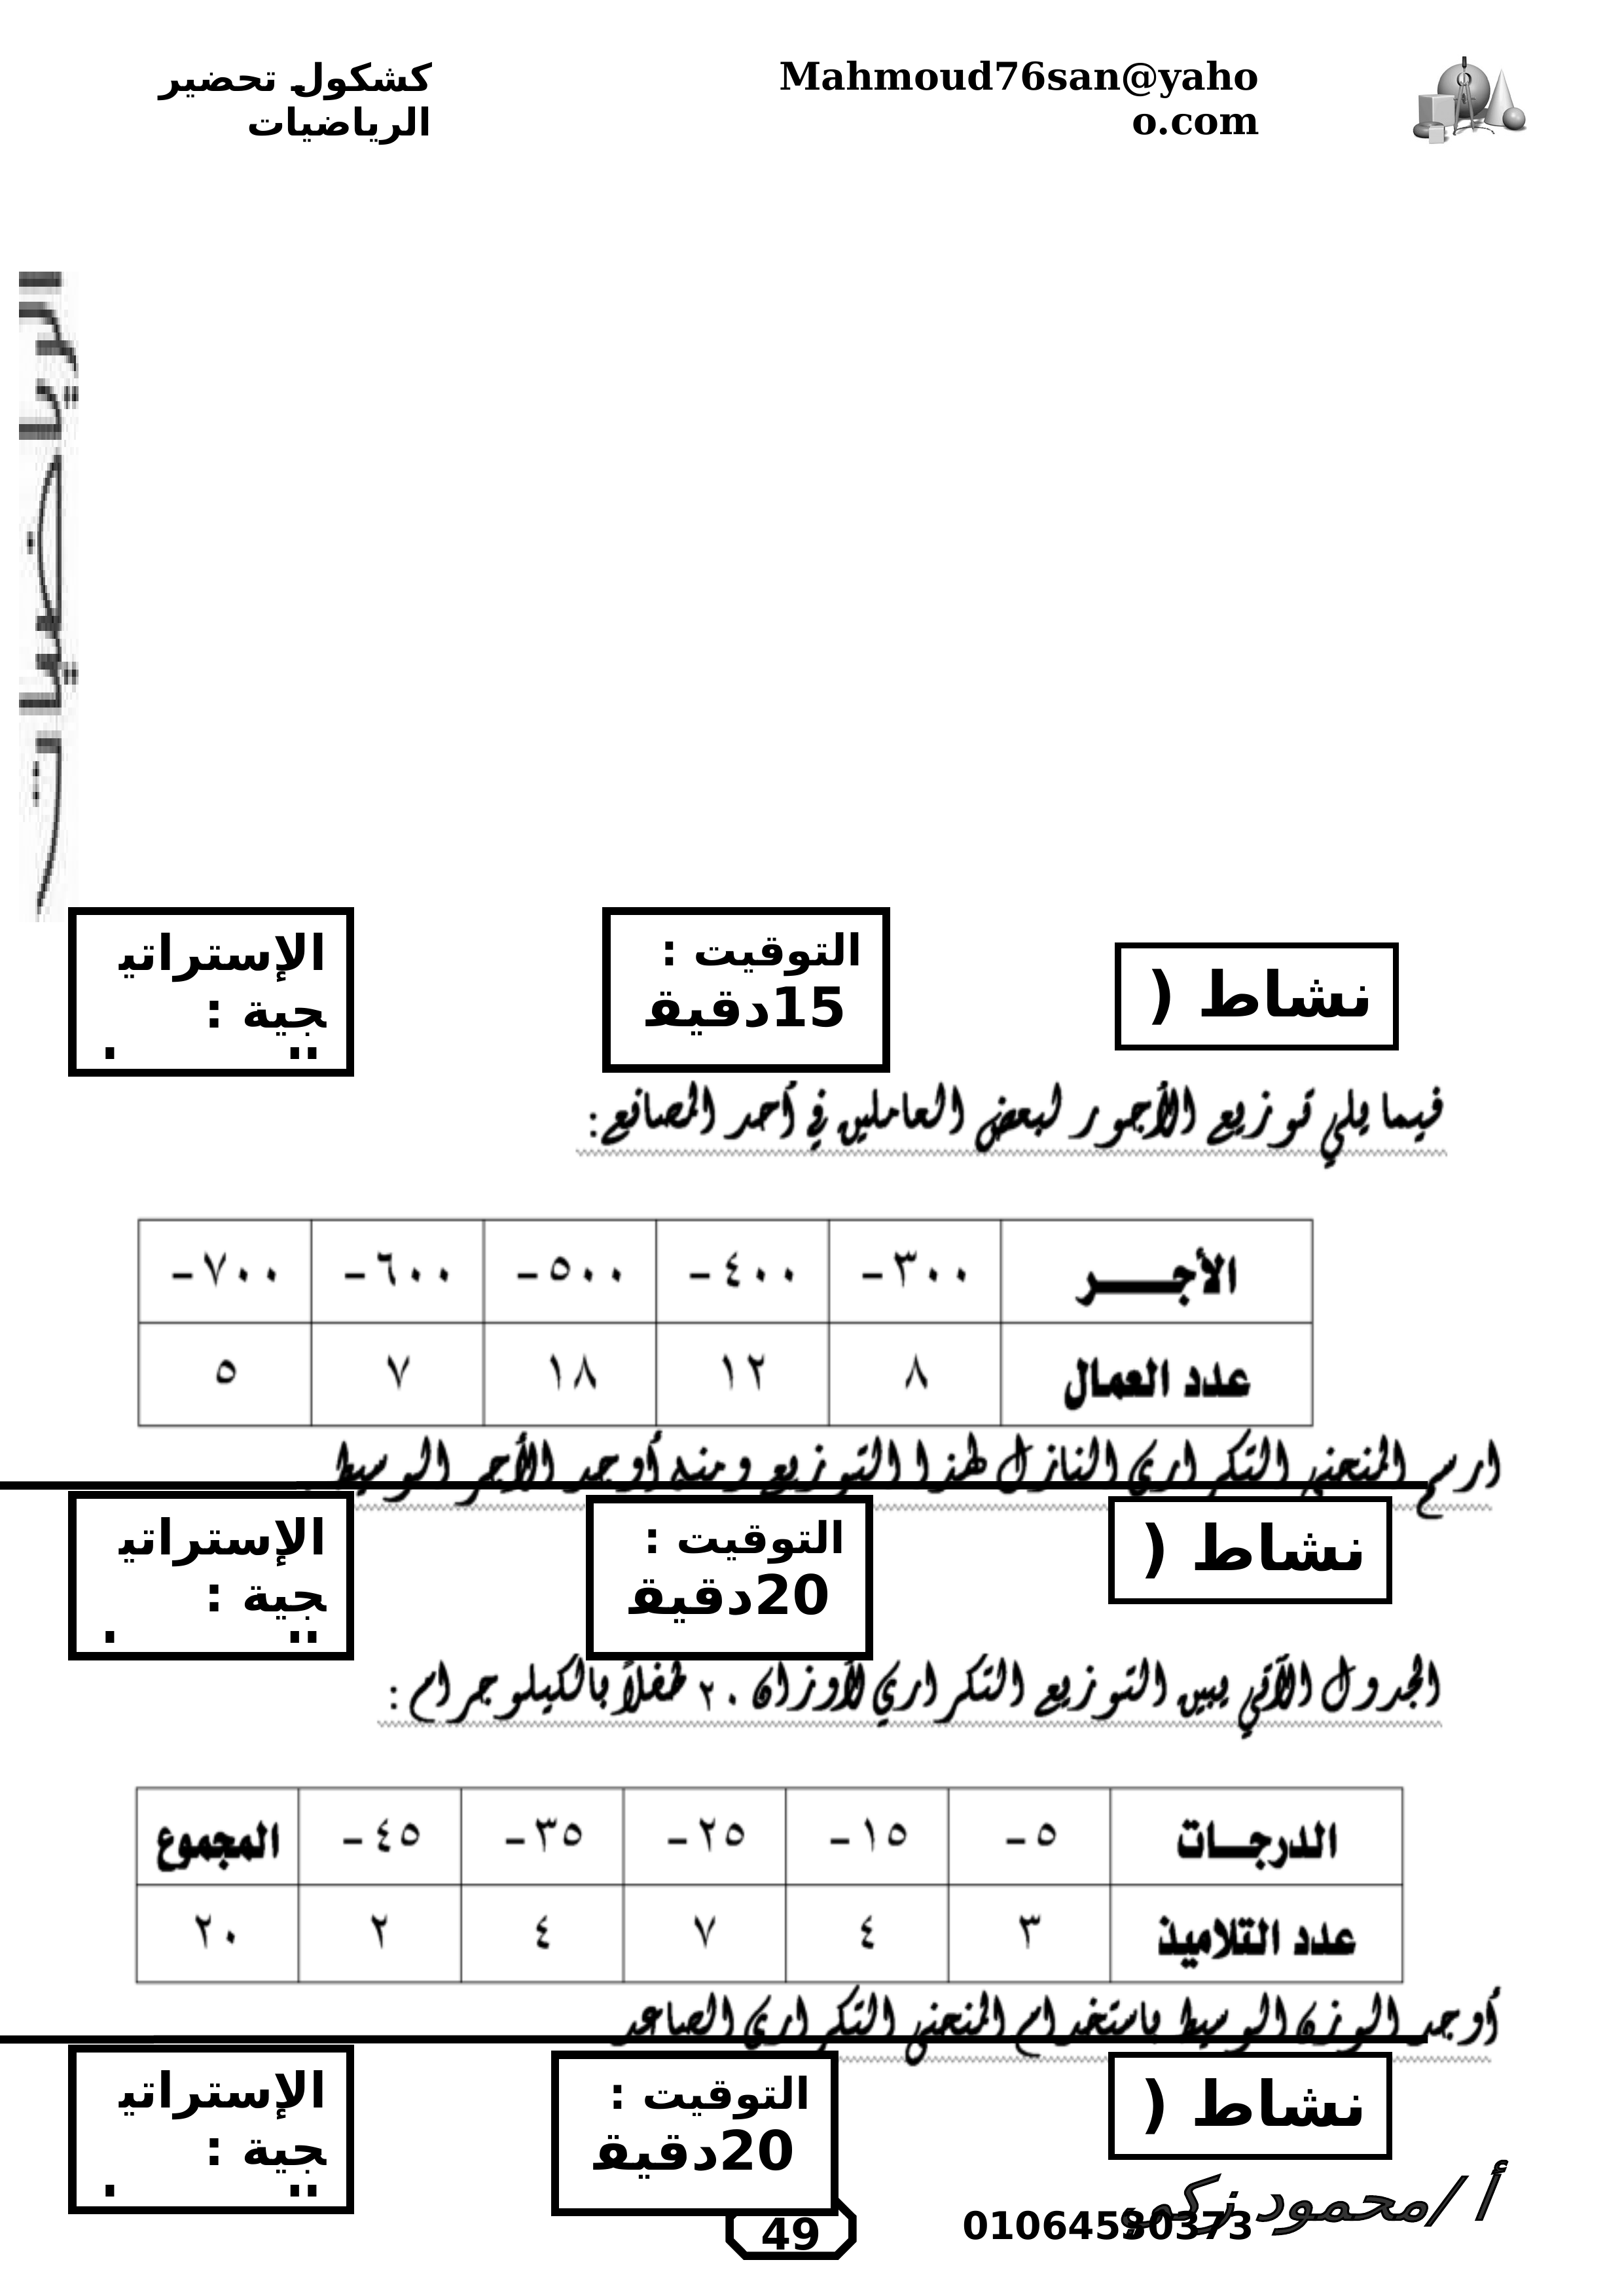 كشكول تحضير
الرياضيات
Mahmoud76san@yaho
o.com
الرياضيات
نشاط (
التوقيت :
15دقيق
الإستراتي
جية :
فيما يلي توزيع الأجور لبعض العاملين في أحد المصانع:
الأجـــر ٣٠٠ – ٤٠٠ – ٥٠٠ – ٦٠٠ – ٧٠٠ –
عدد العمال ٨ ١٢ ١٨ ٧ ٥
ارسم المنحنى التكراري النازل لهذا التوزيع ومنه أوجد الأجر الوسيط
نشاط (
التوقيت :
20دقيق
الإستراتي
جية :
الجدول الآتي يبين التوزيع التكراري لأوزان ٢٠ طفلاً بالكيلو جرام :
الدرجـــات ٥ – ١٥ – ٢٥ – ٣٥ – ٤٥ – المجموع
عدد التلاميذ ٣ ٤ ٧ ٤ ٢ ٢٠
أوجد الوزن الوسيط باستخدام المنحنى التكراري الصاعد
نشاط (
التوقيت :
20دقيق
الإستراتي
جية :
أ /محمود زكي
49